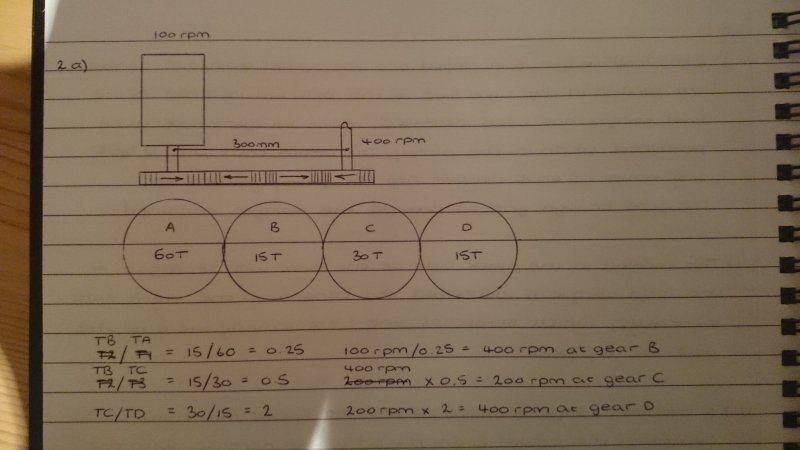 100rpm
2a)
300mm 400rpm
A B C D
60T 15T 30T 15T
TB TA
T2/T1 = 15/60 = 0.25 100rpm/0.25 = 400rpm at gear B
TB TC 400rpm
T2/T3 = 15/30 = 0.5 200rpm x 0.5 = 200rpm at gear C
TC/TD = 30/15 = 2 200rpm x 2 = 400rpm at gear D